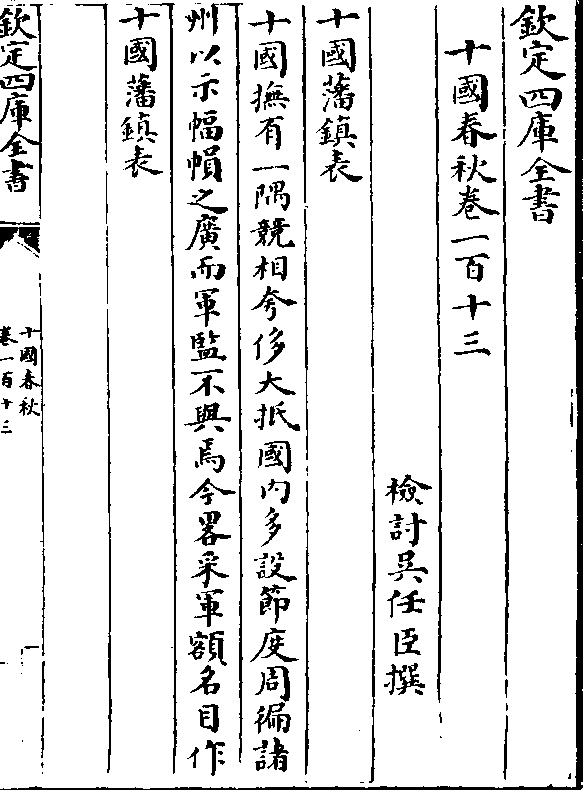 欽定四庫全書
十國春秋卷一百十三
檢討吳任臣撰
十國藩鎮表
十國撫有一隅競相夸侈大抵國內多設節度周徧諸
州以示幅幀之廣而軍監不與焉今畧采軍額名目作
十國藩鎮表
欽定四庫全書
十國春秋
卷一百十三